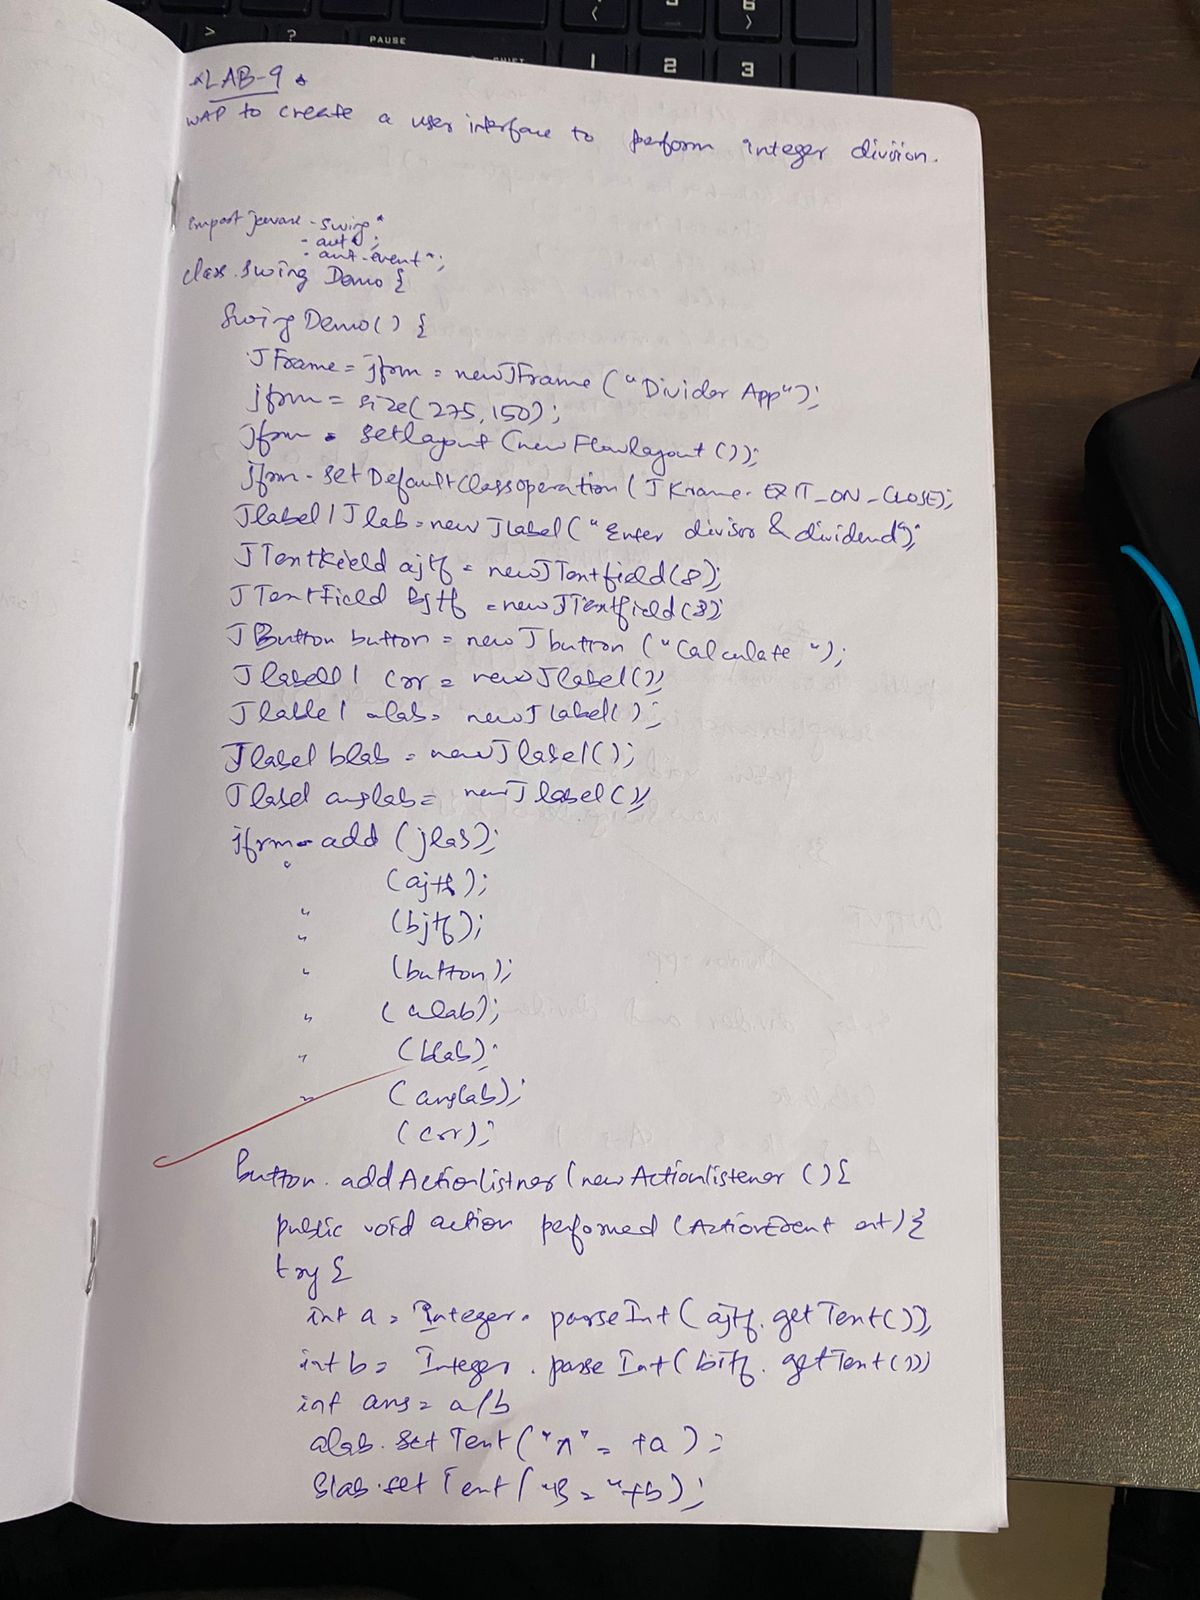 > ? PAUSE
1 2 3
LAB-9
WAP to create a user interface to perform integer division.
import javax.swing*
- awt*;
- awt.event*;
class.Swing Demo {
Swing Demo() {
JFrame = jfrm = new JFrame ("Divider App");
jfrm = size(275,150);
jfrm . setlayout (new Flowlayout ());
jfrm - set Default Class operation ( JFrame. EXIT_ON_CLOSE);
Jlabel | Jlab = new JLabel ("Enter divisor & dividend");
JTextField ajtf = new JTextfield (8);
JTextField bjtf = new JTextfield (8);
JButton button = new Jbutton ("Calculate");
Jlabell | Crr = new Jlabel ();
Jlable | alab = new JLabel( );
Jlabel blab = new Jlabel ();
Jlabel anglab = new Jlabel ();
jfrm . add (jlab);
" (ajtf);
" (bjtf);
" (button);
" (alab);
" (blab);
" (anslab);
(crr);
button. addActionlistner (new Actionlistener () {
public void action performed (ActionEvent evt) {
try {
int a = Integer. parseInt (ajtf. get Text());
int b = Integer . parse Int (bjtf. getText ())
int ans = a/b
alab. set Text ("A" = +a ) ;
blab.set Text ("B = "+b) ;